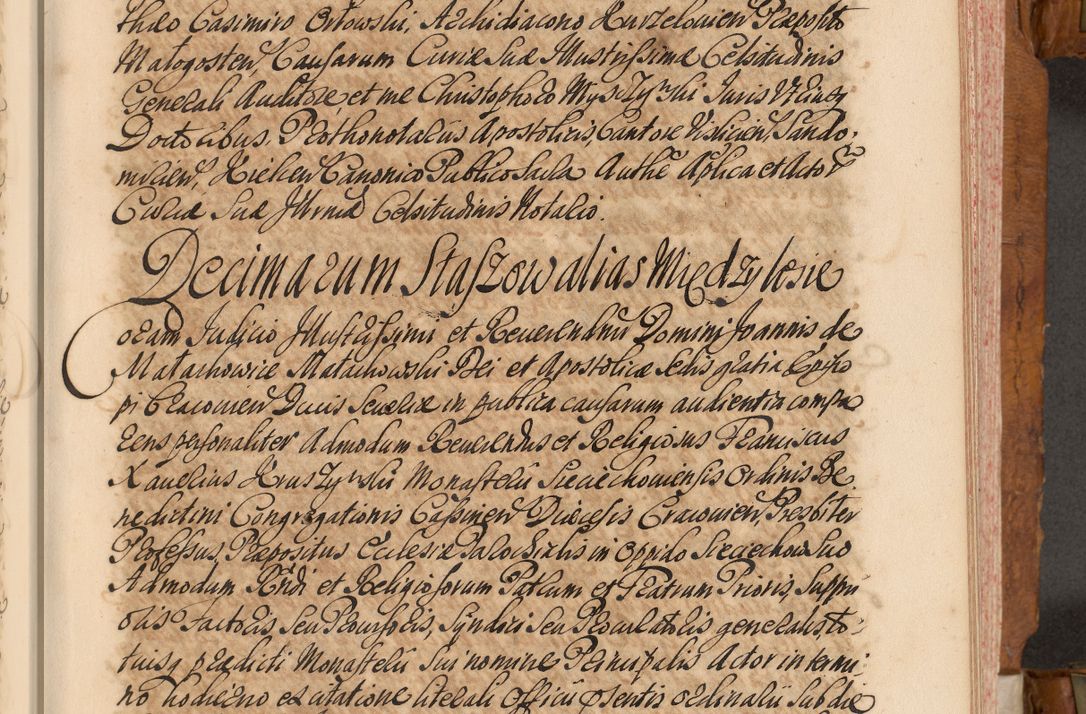 theo Casimiro Orłowski, Archidiacono Kurzelovien Præposito
Małogosten Causarum Curiæ Suæ Illustrissimæ Celsitudinis
Generali Auditore et me Christophoro Myszynski Juris Vtriusq
Doctoribus, Prothonotariis Apostolicis, Cantore Vislicien, Sando-
mirien, Kielcen Canonico Publico Sacra Authē Aplica et Actor
Curiæ Suæ Illrmæ Celsitudinis Notario.
Decimarum Staszow alias Międzylesie
oram Judicio Illustrissimi et Reverendissimi Domini Joannis de
Małachowice Małachowski Dei et Apostolicæ Sedis gratia Episco
pi Cracovien Ducis Severiæ in publica causarum audientia compa
rens personaliter Admodum Reverendus et Religiosus Franciscus
Xaverius Kruszynski Monasterii Sieciechoviensis Ordinis Be
nedictini Congregationis Cassinen Diæcesis Cracovien Presbiter
Professus, Præpositus Ecclesiæ Parochialis in Oppido Sieciechow suo
Admodum Rndi et Religiosorum Patrum et Fratrum Prioris, Suppri
oris Factoris seu Provisoris, Syndici seu Procuratoris generalis, to-
tiusq prædicti Monasterii sui nomine Principalis Actor in termi-
no hodierno ex citatione literali Officii præsentis ordinarii sub die